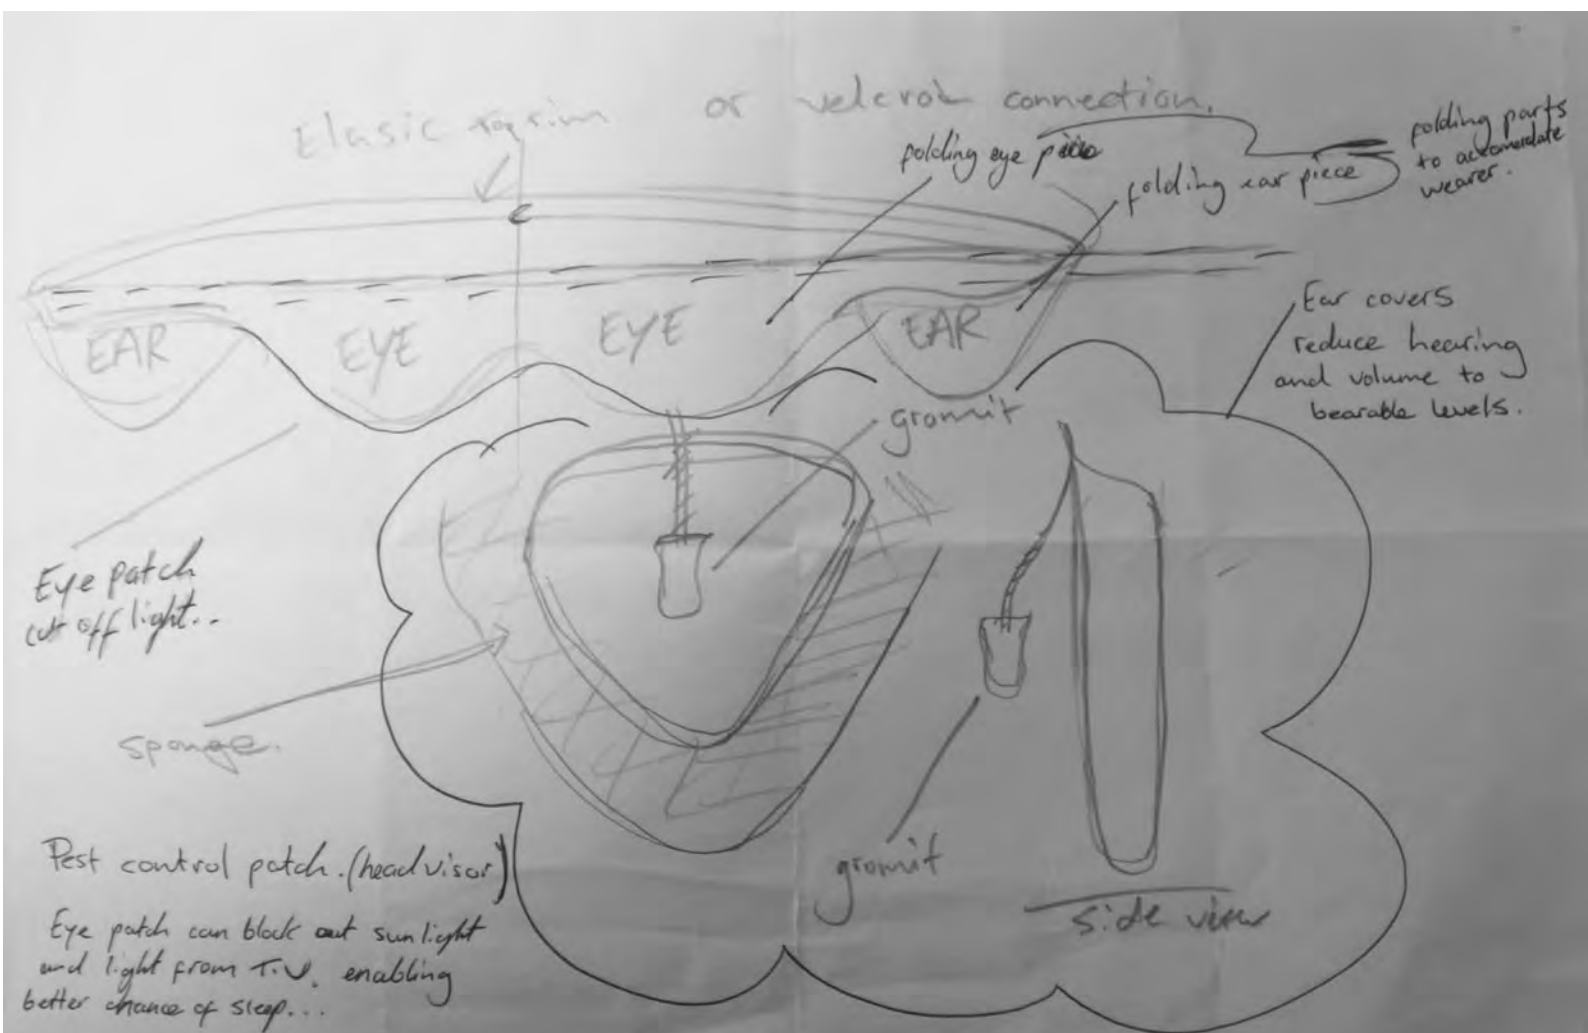 Elasic or velcrok connection.
folding eye piece
folding ear piece
folding parts
to accomerdate
wearer.
EAR
EYE
EYE
EAR
Ear covers
reduce hearing
and volume to
bearable levels.
grommit
Eye patch
cut off light..
sponge.
grommit
side view
Pest control patch. (head visor)
Eye patch can block out sunlight
and light from T.V. enabling
better chance of sleep...